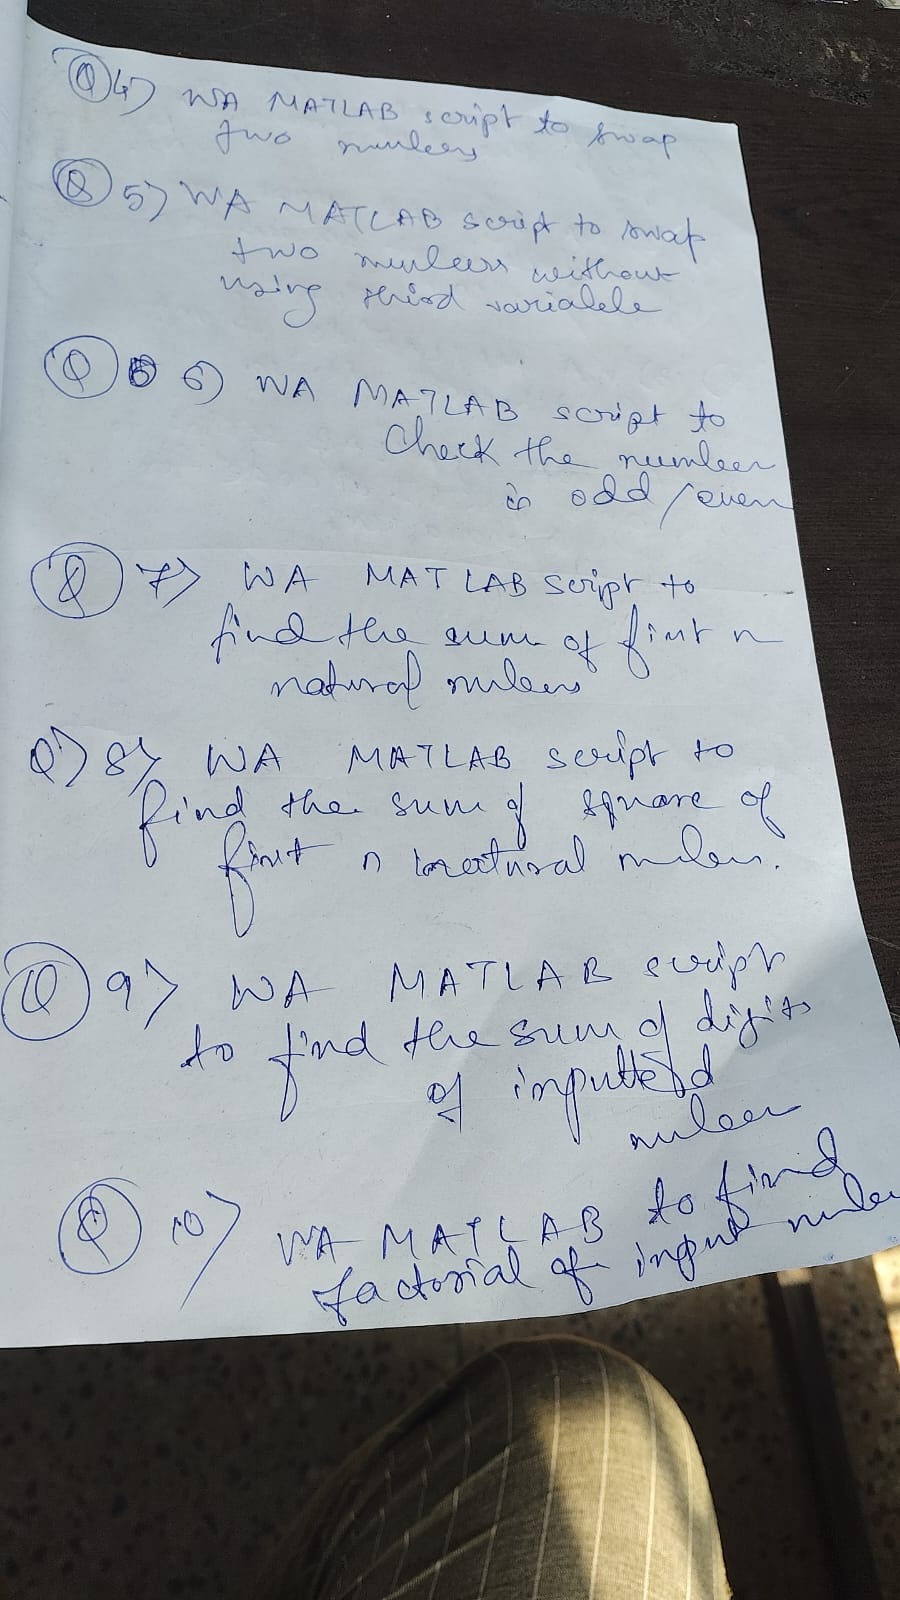 Q 4) WA MATLAB script to swap
two numbers
Q 5) WA MATLAB script to swap
two numbers without
using third variable
Q 6) WA MATLAB script to
Check the number
is odd/even
Q 7) WA MATLAB script to
find the sum of first n
natural numbers
Q) 8) WA MATLAB script to
find the sum of square of
first n natural number.
Q 9) WA MATLAB script
to find the sum of digits
of inputted
number
Q 10) WA MATLAB to find
factorial of input number